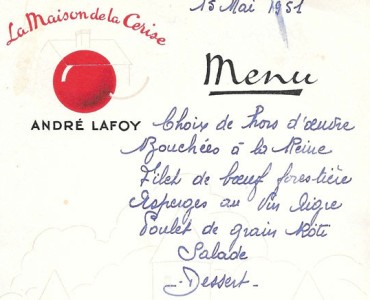 15 Mai 1951
La Maison de la Cerise
Menu
ANDRÉ LAFOY
Choix de Hors d'œuvre
Bouchées à la Reine
Filet de bœuf forestière
Asperges au Vin Aigre
Poulet de grain Rôti
Salade
Dessert